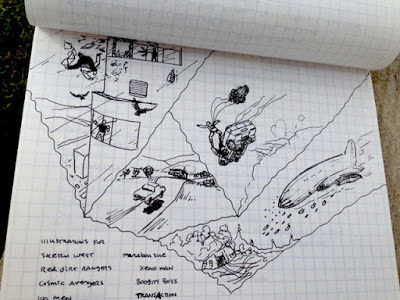 ILLUSTRATIONS FOR
SKETCH WEST
RED DIRT RANGERS
COSMIC AVENGERS
MEN
XENO MAN
BOOGITY BOYS
TRANSACTION